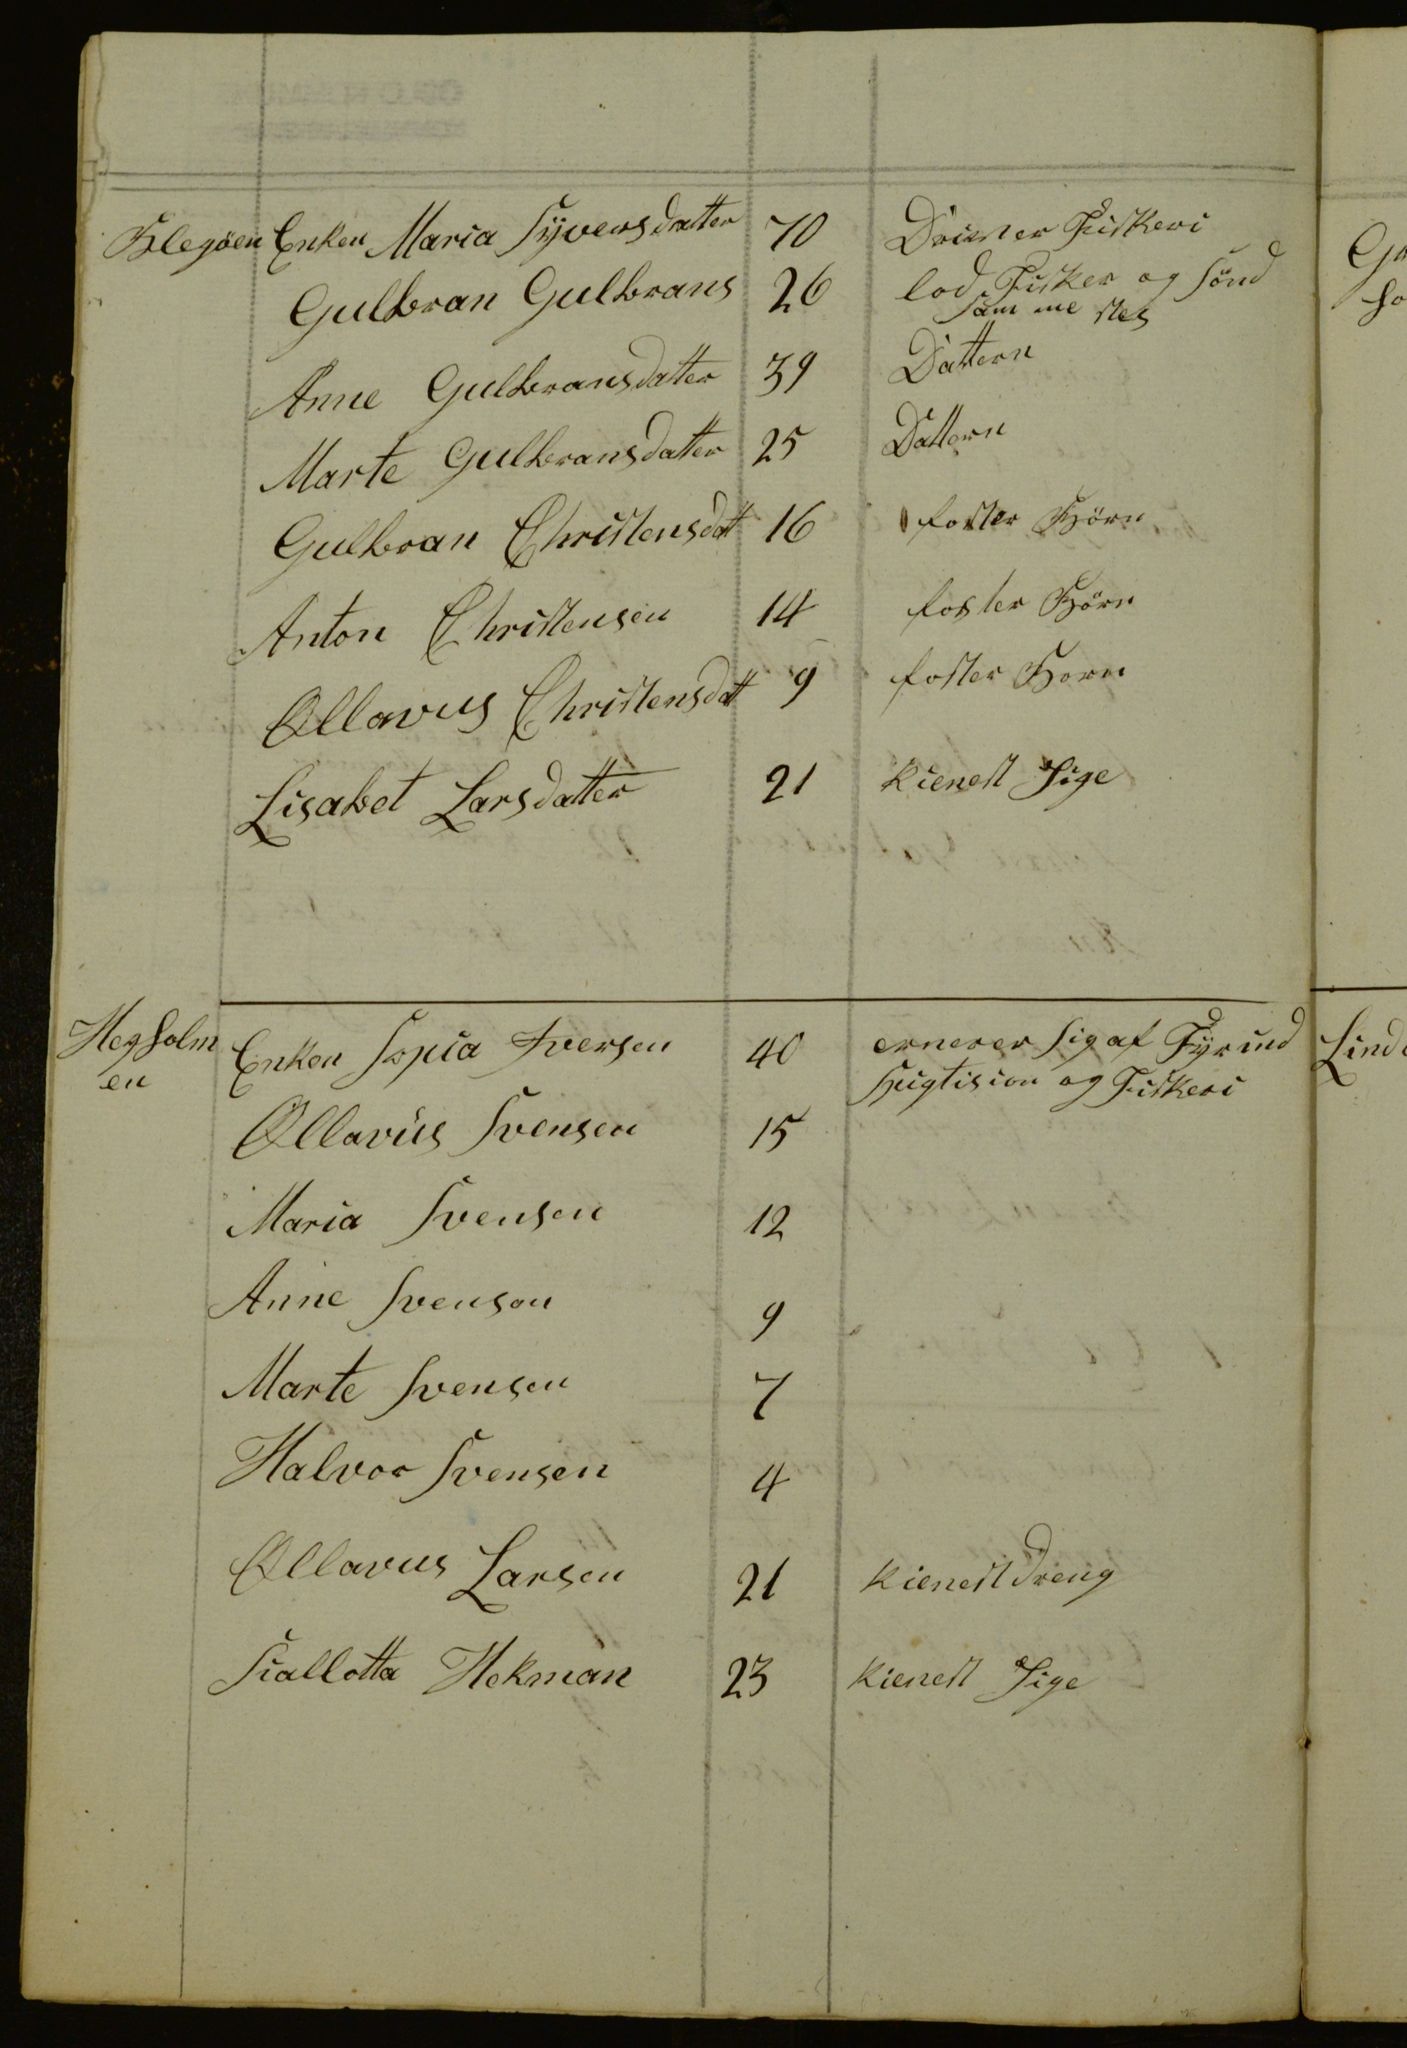 Blegöen Enken Maria Syversdatter 70 Driver Fiskeri
Gulbran Gulbrans 26 lod Fisker og Sönd
Samme sted
Anne Gulbransdatter 39 Dattern
Marte Gulbransdatter 25 Dattern
Gulbran Christensdat 16 foster Börn
Anton Christensen 14 foster Börn
Ollavus Christensdat 9 foster Born
Lisabet Larsdatter 21 kienest Pige
Hegholm
en
Enken Sopia Iversen 40 ernerer sig af Fyr ind
Fiskeri og
Ollavus Svensen 15
Maria Svensen 12
Anne Svensen 9
Marte Svensen 7
Halvor Svensen 4
Ollavus Larsen 21 kienest dreng
Siallotta Hekman 23 kienest Pige
Lind